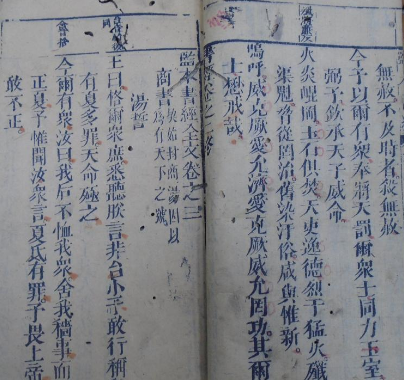 無赦不及時者殺無赦
今予以爾有衆奉將天罰爾衆士同力王室
弼予欽承天子威命
火炎崐岡玉石俱焚天吏逸德烈于猛火殲
渠魁脅從罔治舊染汙俗咸與惟新
嗚呼威克厥愛允濟愛克厥威允罔功其爾
士懋戒哉
監本書經全文卷之三
商書
契始封商湯因以
為有天下之號
湯誓
王曰格爾衆庶悉聽朕言非台小子敢行稱
有夏多罪天命殛之
今爾有衆汝曰我后不恤我衆舍我穡事而
正夏予惟聞汝衆言夏氏有罪予畏上帝
敢不正